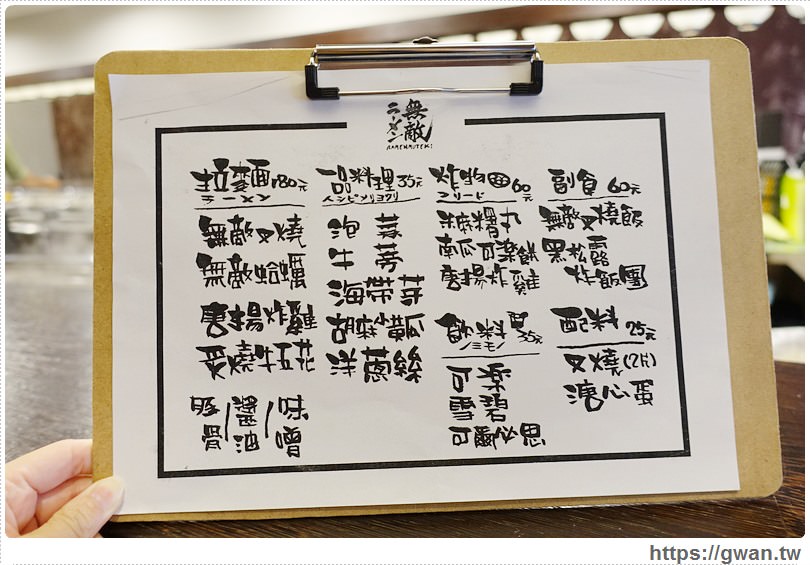 無敵
ラーメン
RAMENMUTEKI
拉麵 180元
ラーメン
無敵叉燒
無敵蛤蠣
唐揚炸雞
炙燒牛五花
豚骨/醬油/味噌
一品料理 35元
泡菜
牛蒡
海帶芽
胡麻小黃瓜
洋蔥絲
炸物 60元
フリード
米糕糬丸
南瓜可樂餅
唐揚炸雞
飲料 35元
ノミモノ
可樂
雪碧
可爾必思
副食 60元
無敵叉燒飯
黑松露
炸飯團
配料 25元
叉燒(2片)
溏心蛋
https://gwan.tw